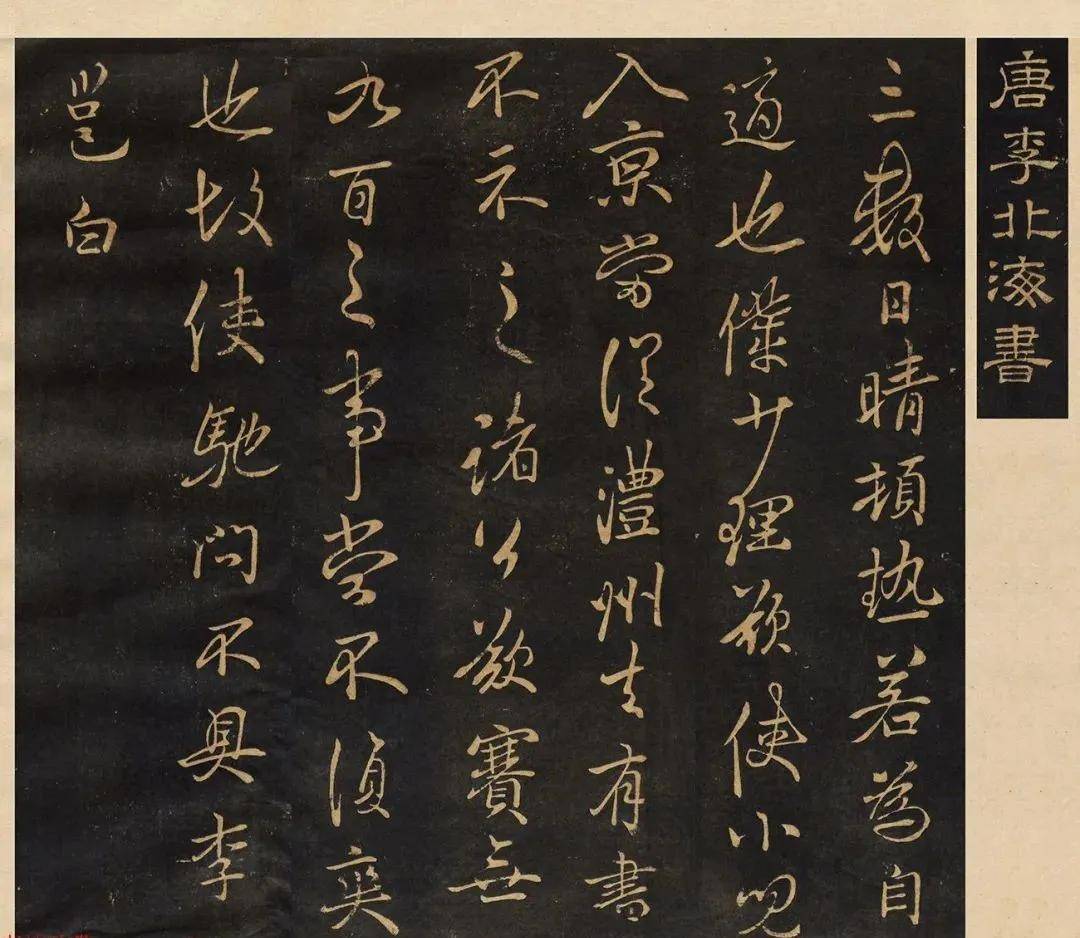 唐李北海書
三數日晴頓熱若為自
適也僕少理欲使小兒
入京當從澧州去有書
不示之諸公欲賽無
九百之事當不須奕
也故使馳問不具李
邕白